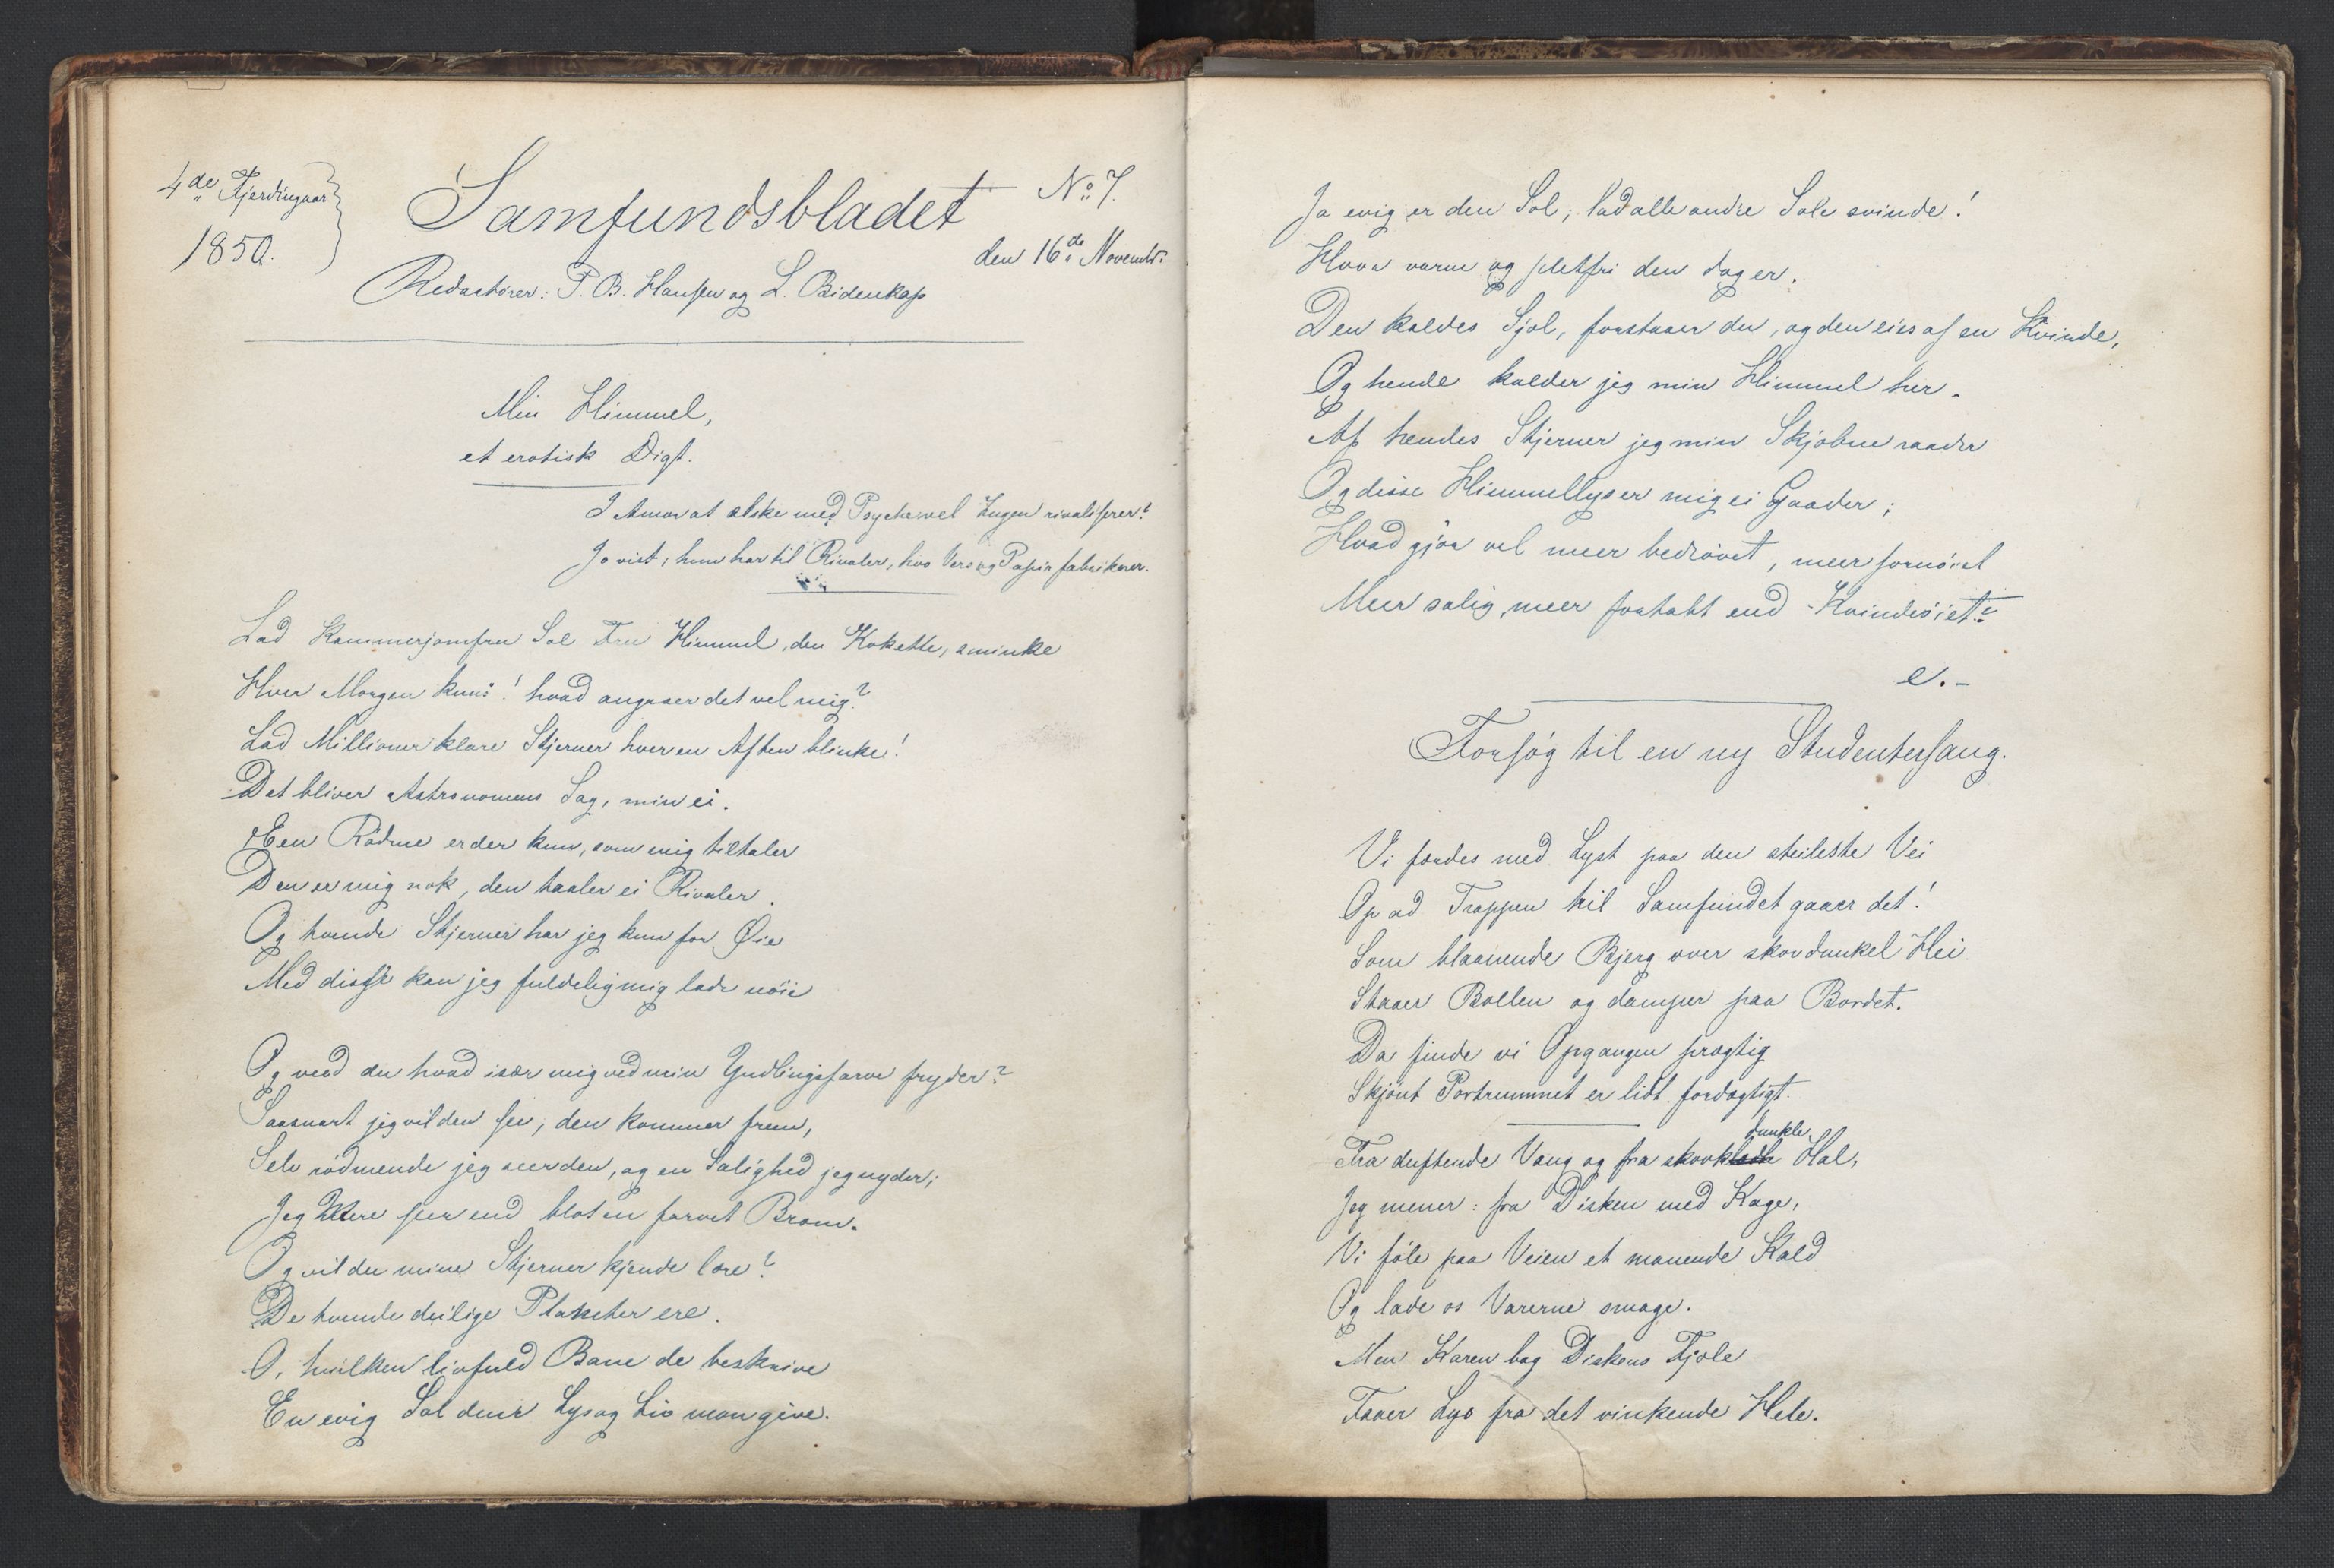 4de Fjerdingaar
1850.
Samfundsbladet
No 7.
den 16de Novembr.
Redactører: P. B. Hansen og L. Bidenkap
Min Himmel,
et erotisk Digt.
I Amor at elske med Psyche vel Ingen rivaliserer?
Jo vist; hun har til Rivaler, hvo Vers og Papir fabrikerer.
Lad Kammerjomfru Sol Fru Himmel, den Kokette, sminke
Hver Morgen kuns! hvad angaaer det vel mig?
Lad Millioner klare Stjerner hver en Aften blinke!
Det bliver Astronomens Sag, min ei.
Een Rødme er der kun, som mig tiltaler
Den er mig nok, den taaler ei Rivaler.
Og tvende Stjerner har jeg kun for Øie
Med disse kan jeg fuldelig mig lade nøie
Og veed du hvad især mig ved min Yndlingsfarve fryder?
Saasnart jeg vil den see, den kommer frem,
Selv rødmende jeg seer den, og en Salighed jeg nyder;
Jeg Mere seer end blot en farvet Bræm.
Og vil du mine Stjerner kjende lære?
De tvende deilige Planeter ere.
O, hvilken livfuld Bane de beskrive
En evig Sol dem Lys og Liv mon give.
Ja evig er den Sol; lad alle andre Sole svinde!
Hvor varm og pletfri den dog er.
Den kaldes Sjæl, forstaaer du, og den eies af en Kvinde,
Og hende kalder jeg min Himmel her.
Af hendes Stjerner jeg min Skjæbne raader
Og disse Himmellys er mig ei Gaader;
Hvad gjør vel meer bedrøvet, meer fornøiet
Meer salig, meer fortabt end - Kvindeøiet?
e. -
Forsøg til en ny Studentersang.
Vi færdes med Lyst paa den steileste Vei
Op ad Trappen til Samfundet gaaer det!
Som blaanende Bjerg over skovdunkel Hei
Staaer Bollen og damper paa Bordet.
Da finde vi Opgangen prægtig
Skjønt Portrummet er lidt fordægtigt.
Fra duftende Vang og fra skovdunkle Hal,
Jeg mener: fra Disken med Kage,
Vi føle paa Veien et manende Kald
Og lade os Varerne smage.
Men Karen bag Diskens Fjæle
Faaer Lys fra det vinkende Hele.